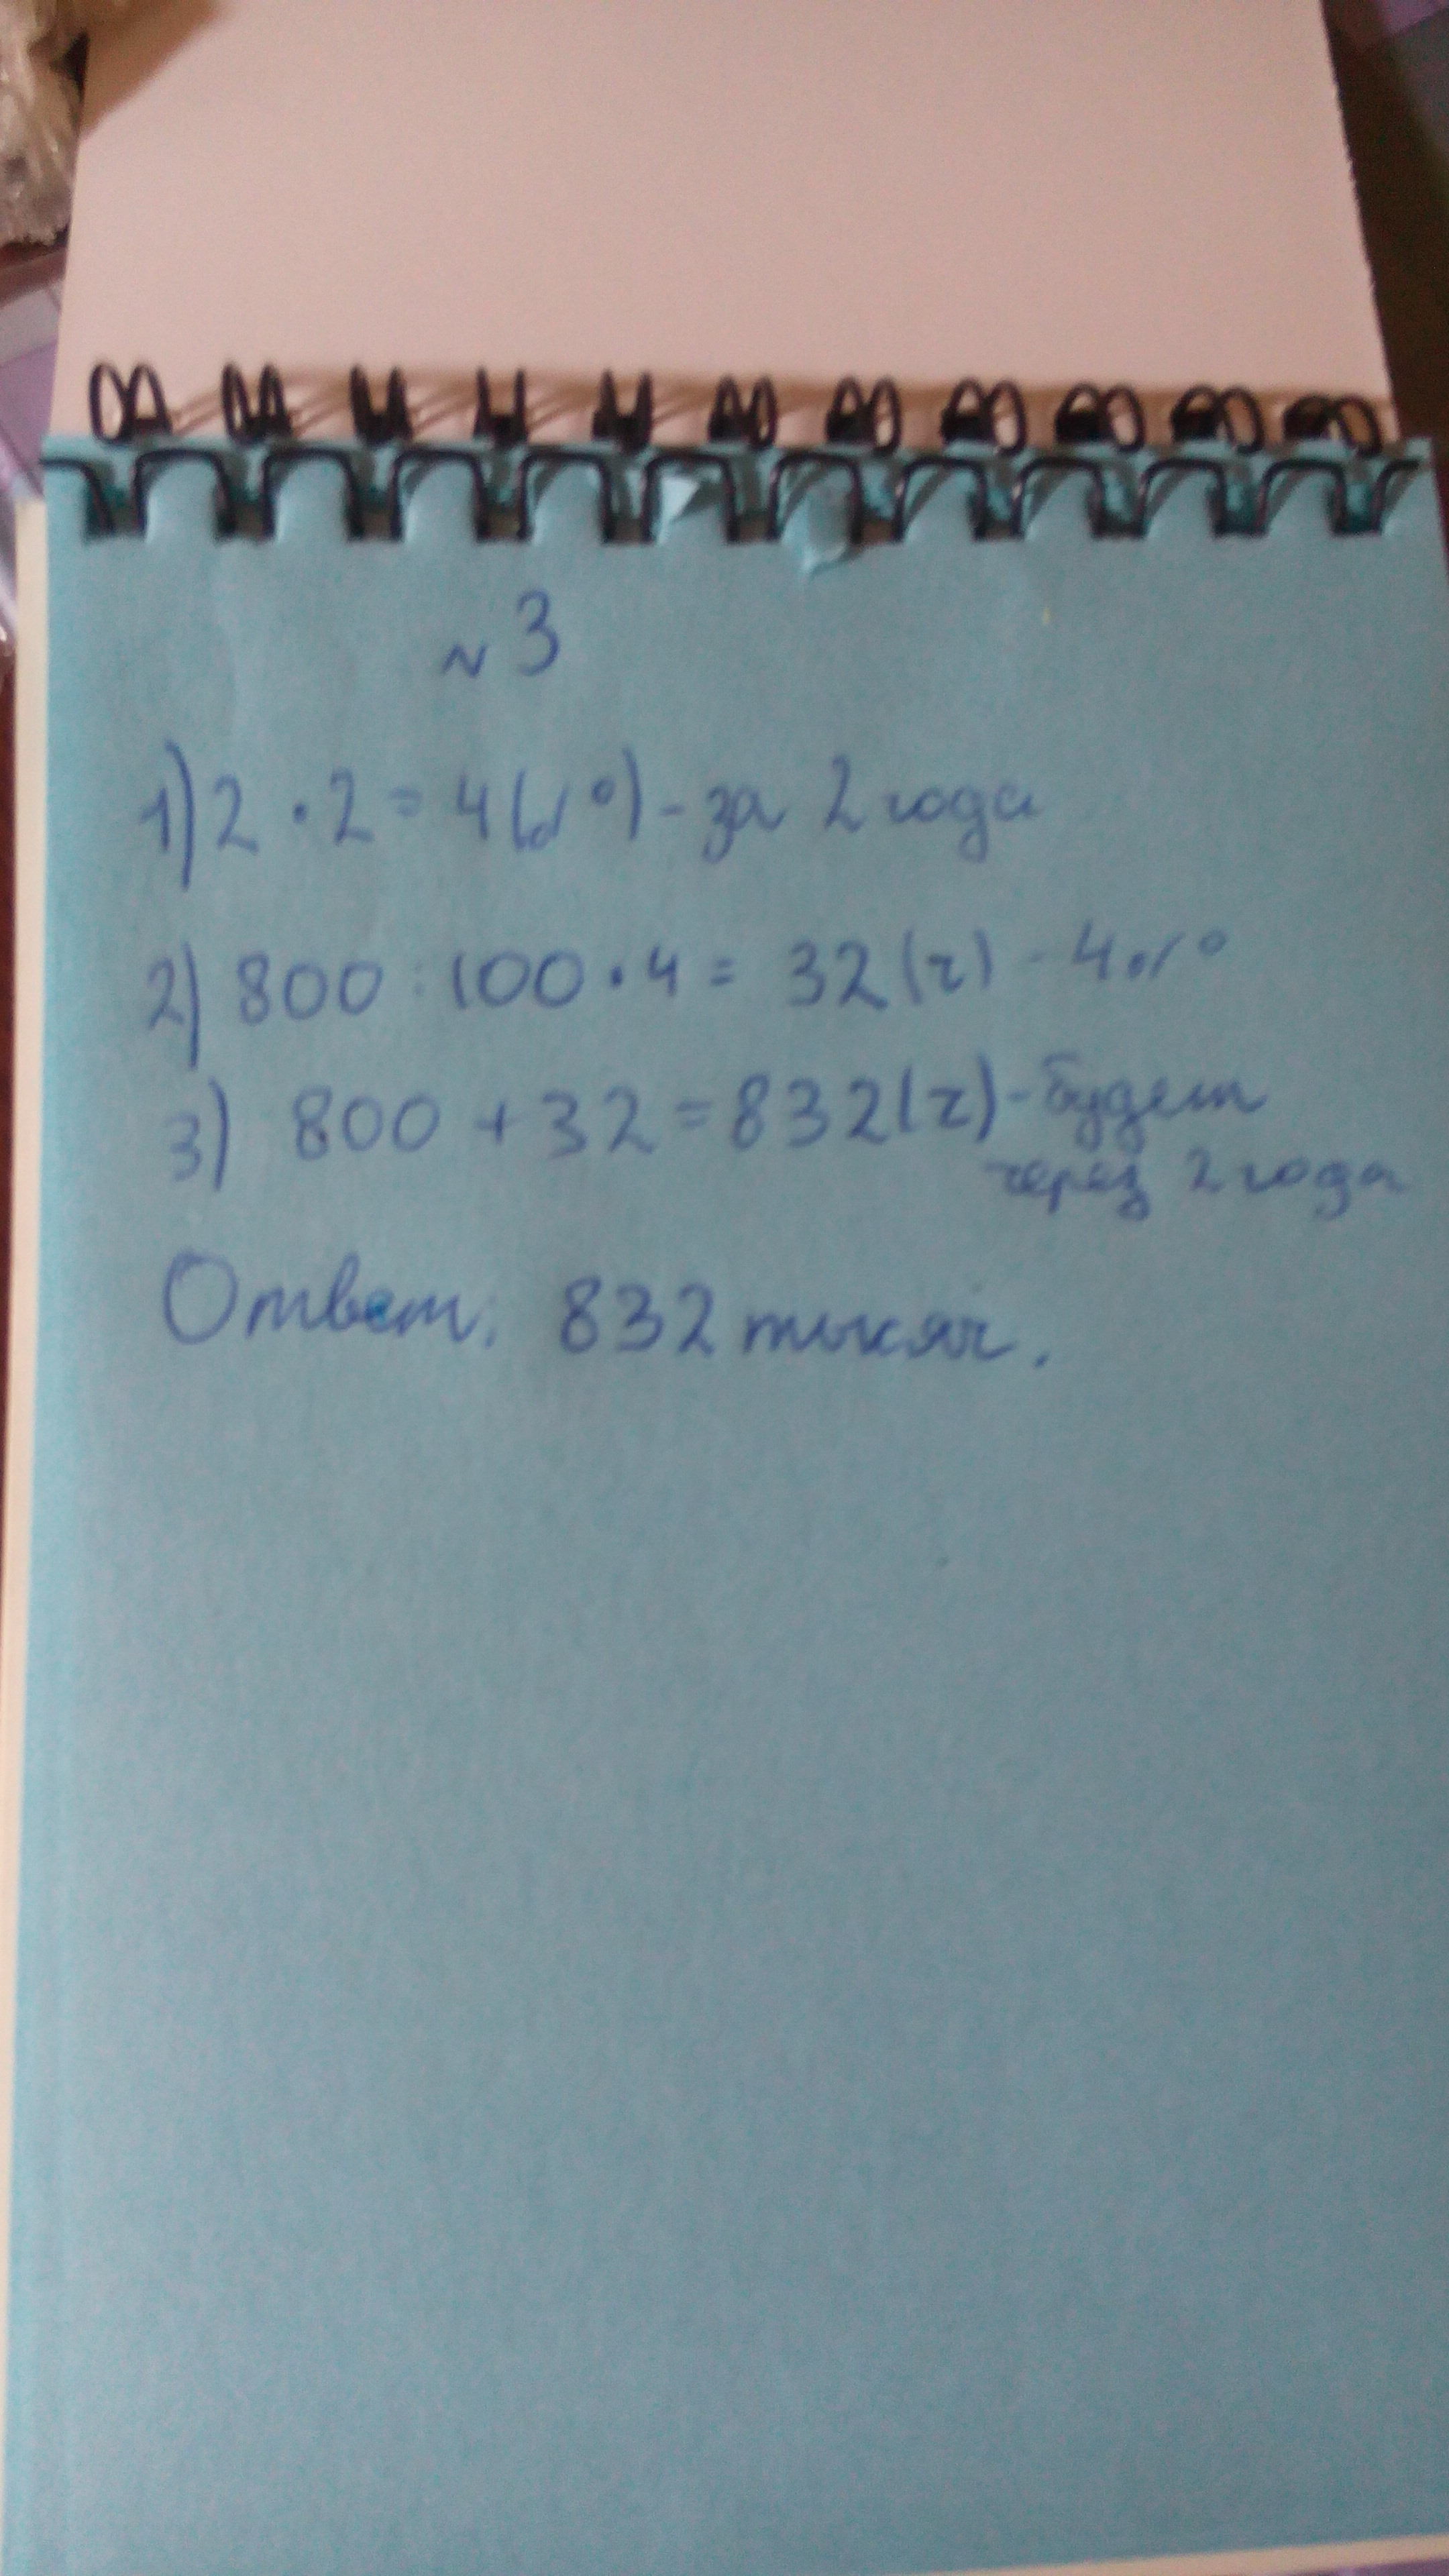 №3
1) 2 · 2 = 4 (%) - за 2 года
2) 800 : 100 · 4 = 32 (т) - 4 %
3) 800 + 32 = 832 (т) - будет
через 2 года
Ответ: 832 тысяч.